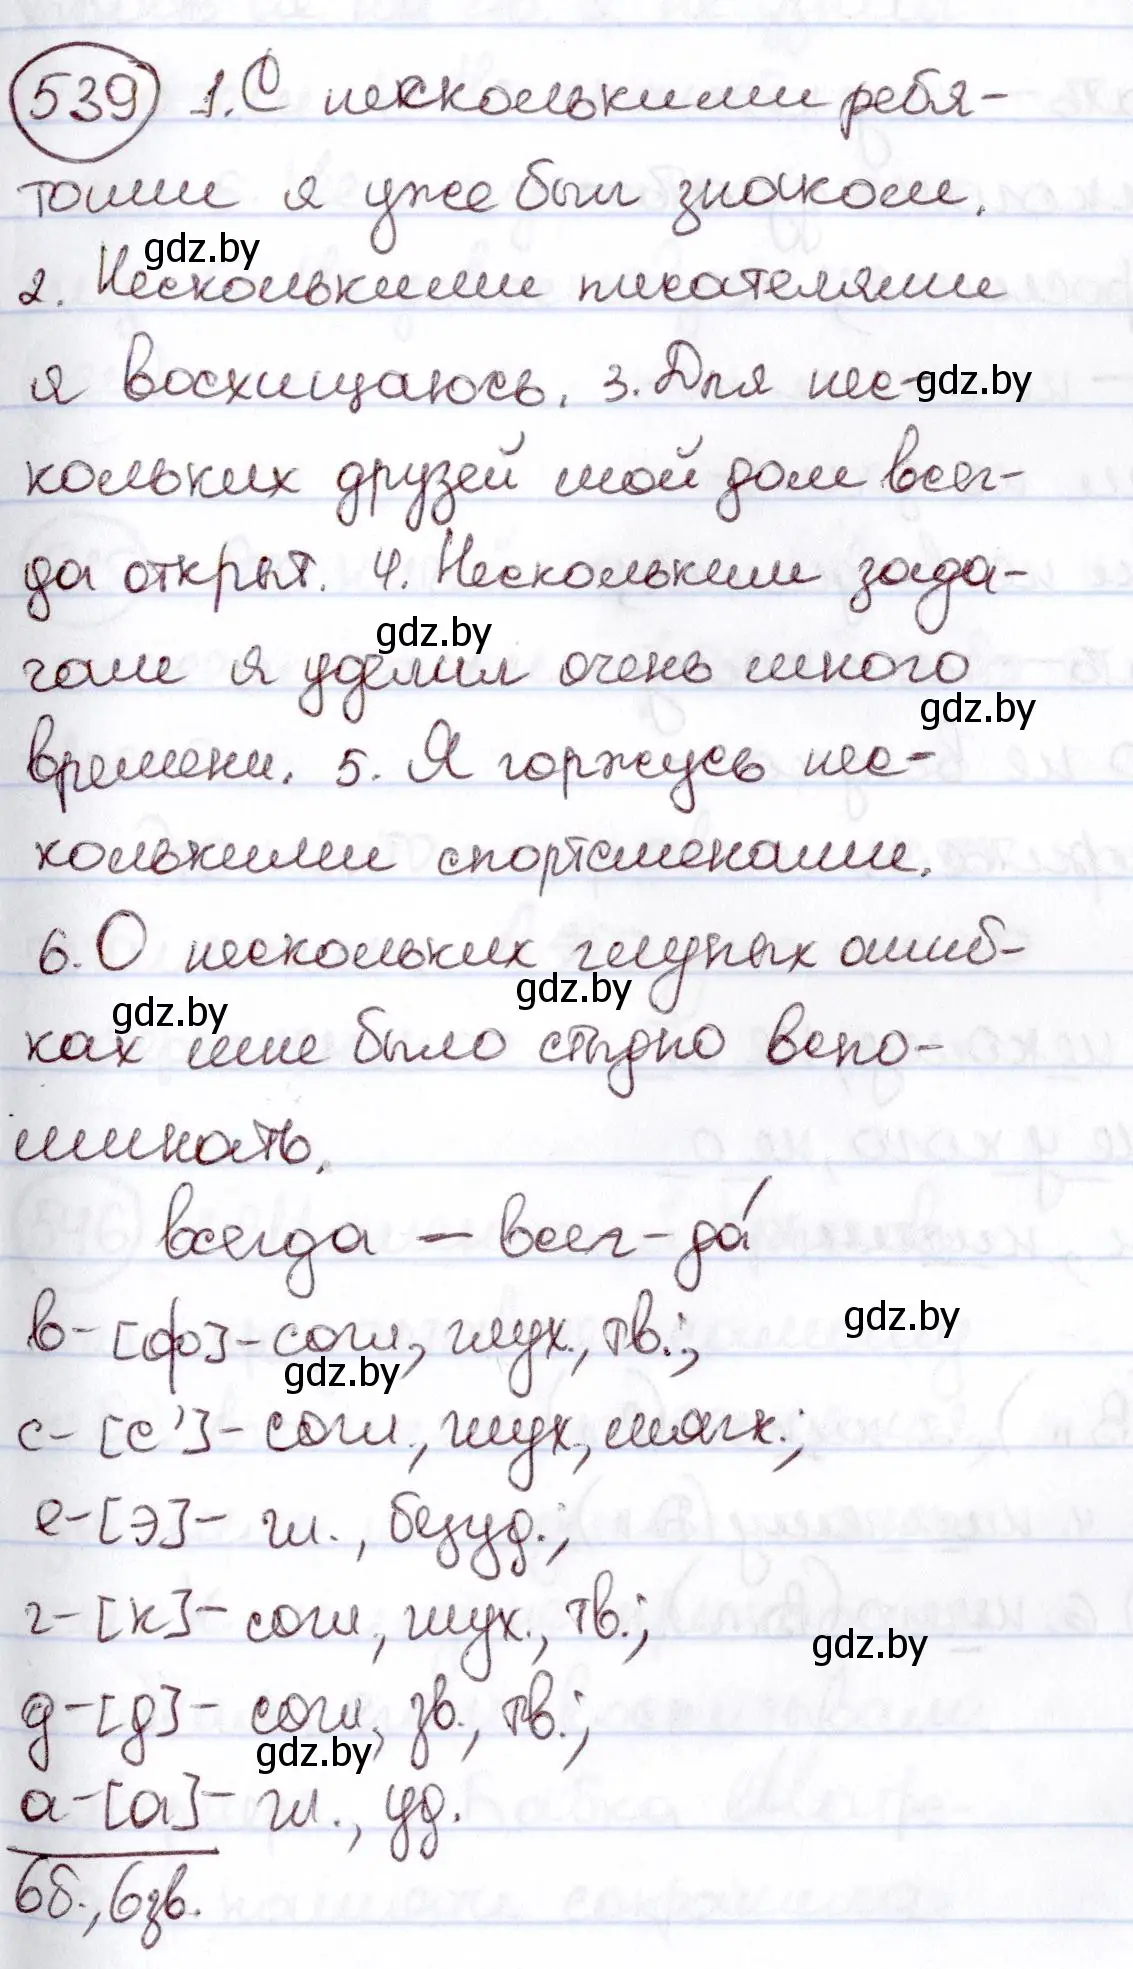 539 1. С несколькими ребя-
тами я уже был знаком.
gdz.by
2. Несколькими писателями
я восхищаюсь. 3. Для нес-
gdz.by
кольких друзей мой дом всег-
да открыт. 4. Нескольким зада-
gdz.by
чам я уделил очень много
gdz.by
времени. 5. Я горжусь нес-
колькими спортсменами.
6. О нескольких глупых ошиб-
gdz.by
gdz.by
ках мне было стыдно вспо-
минать.
всегда – всег-да́
в-[ф]-согл, глух., тв.;
gdz.by
gdz.by
с-[с']-согл., глух, мягк.;
е-[э]- гл., безуд.;
г-[к]- согл, глух., тв.;
gdz.by
д-[д]- согл, зв., тв.;
gdz.by
а-[а]- гл., уд.
6б., 6зв.